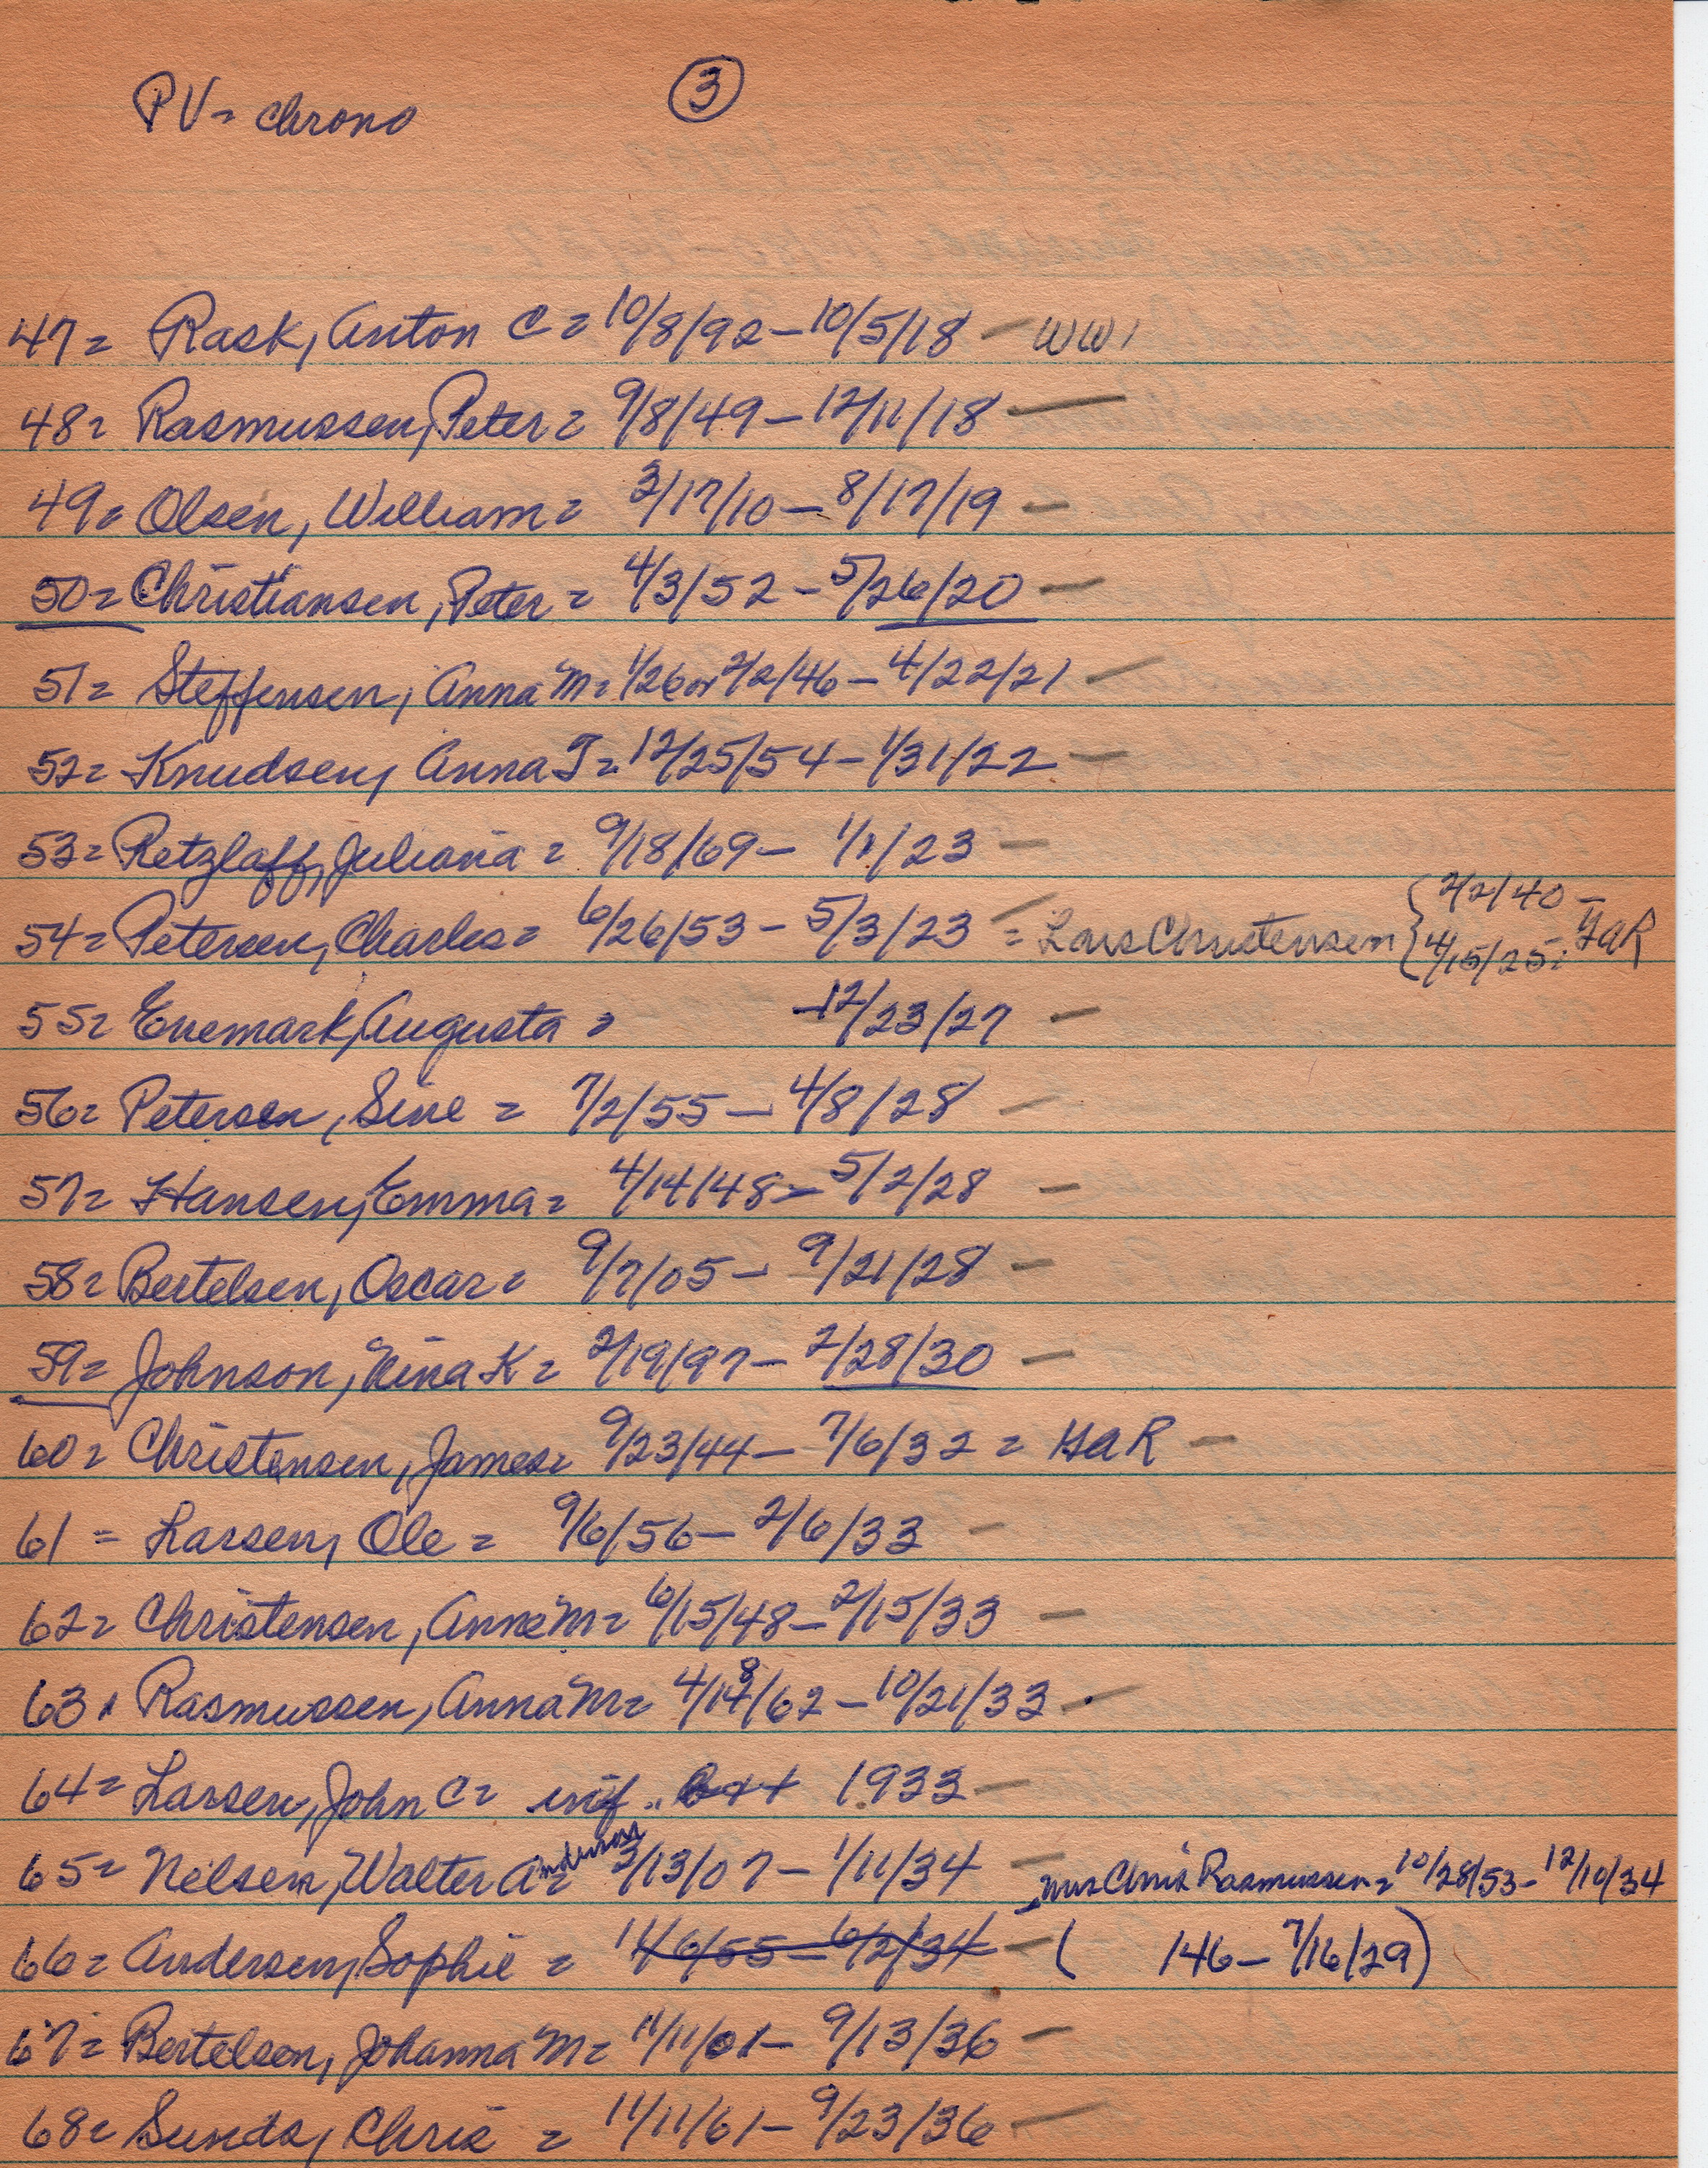 PV = chrono
3
47 = Rask, Anton C = 10/8/92 - 10/5/18 - WW1
48 = Rasmussen, Peter = 9/8/49 - 12/11/18 -
49 = Olsen, William = 3/17/10 - 8/17/19 -
50 = Christiansen, Peter = 4/3/52 - 5/26/20 -
51 = Steffensen, Anna M = 1/26 or 2/2/46 - 4/22/21 -
52 = Knudsen, Anna T = 12/25/54 - 1/31/22 -
53 = Retzlaff, Juliana = 9/18/69 - 1/1/23 -
54 = Petersen, Charles = 6/26/53 - 5/3/23 = Lars Christensen { 2/2/40 - 4/15/25 = GAR
55 = Enemark, Augusta = - 12/23/27 -
56 = Petersen, Sine = 7/2/55 - 4/8/28 -
57 = Hansen, Emma = 4/14/48 - 5/2/28 -
58 = Bertelsen, Oscar = 9/7/05 - 9/21/28 -
59 = Johnson, Nina K = 2/19/97 - 2/28/30 -
60 = Christensen, James = 9/23/44 - 7/6/32 = GAR -
61 = Larsen, Ole = 9/6/56 - 2/6/33 -
62 = Christensen, Anne M = 6/15/48 - 2/15/33 -
63 = Rasmussen, Anna M = 4/18/62 - 10/21/33 -
64 = Larsen, John C = inf. 1933 -
65 = Nelsen, Walter Anderson = 3/13/07 - 1/11/34 - Mrs Chris Rasmussen = 10/28/53 - 12/10/34
66 = Andersen, Sophie = 1/16/55 - 6/2/34 - ( 146 - 7/16/29)
67 = Bertelsen, Johanna M = 11/11/01 - 9/13/36 -
68 = Sunds, Chris = 11/11/61 - 9/23/36 -